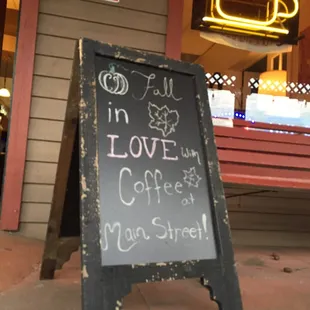 Fall
in
LOVE with
Coffee at
Main Street!